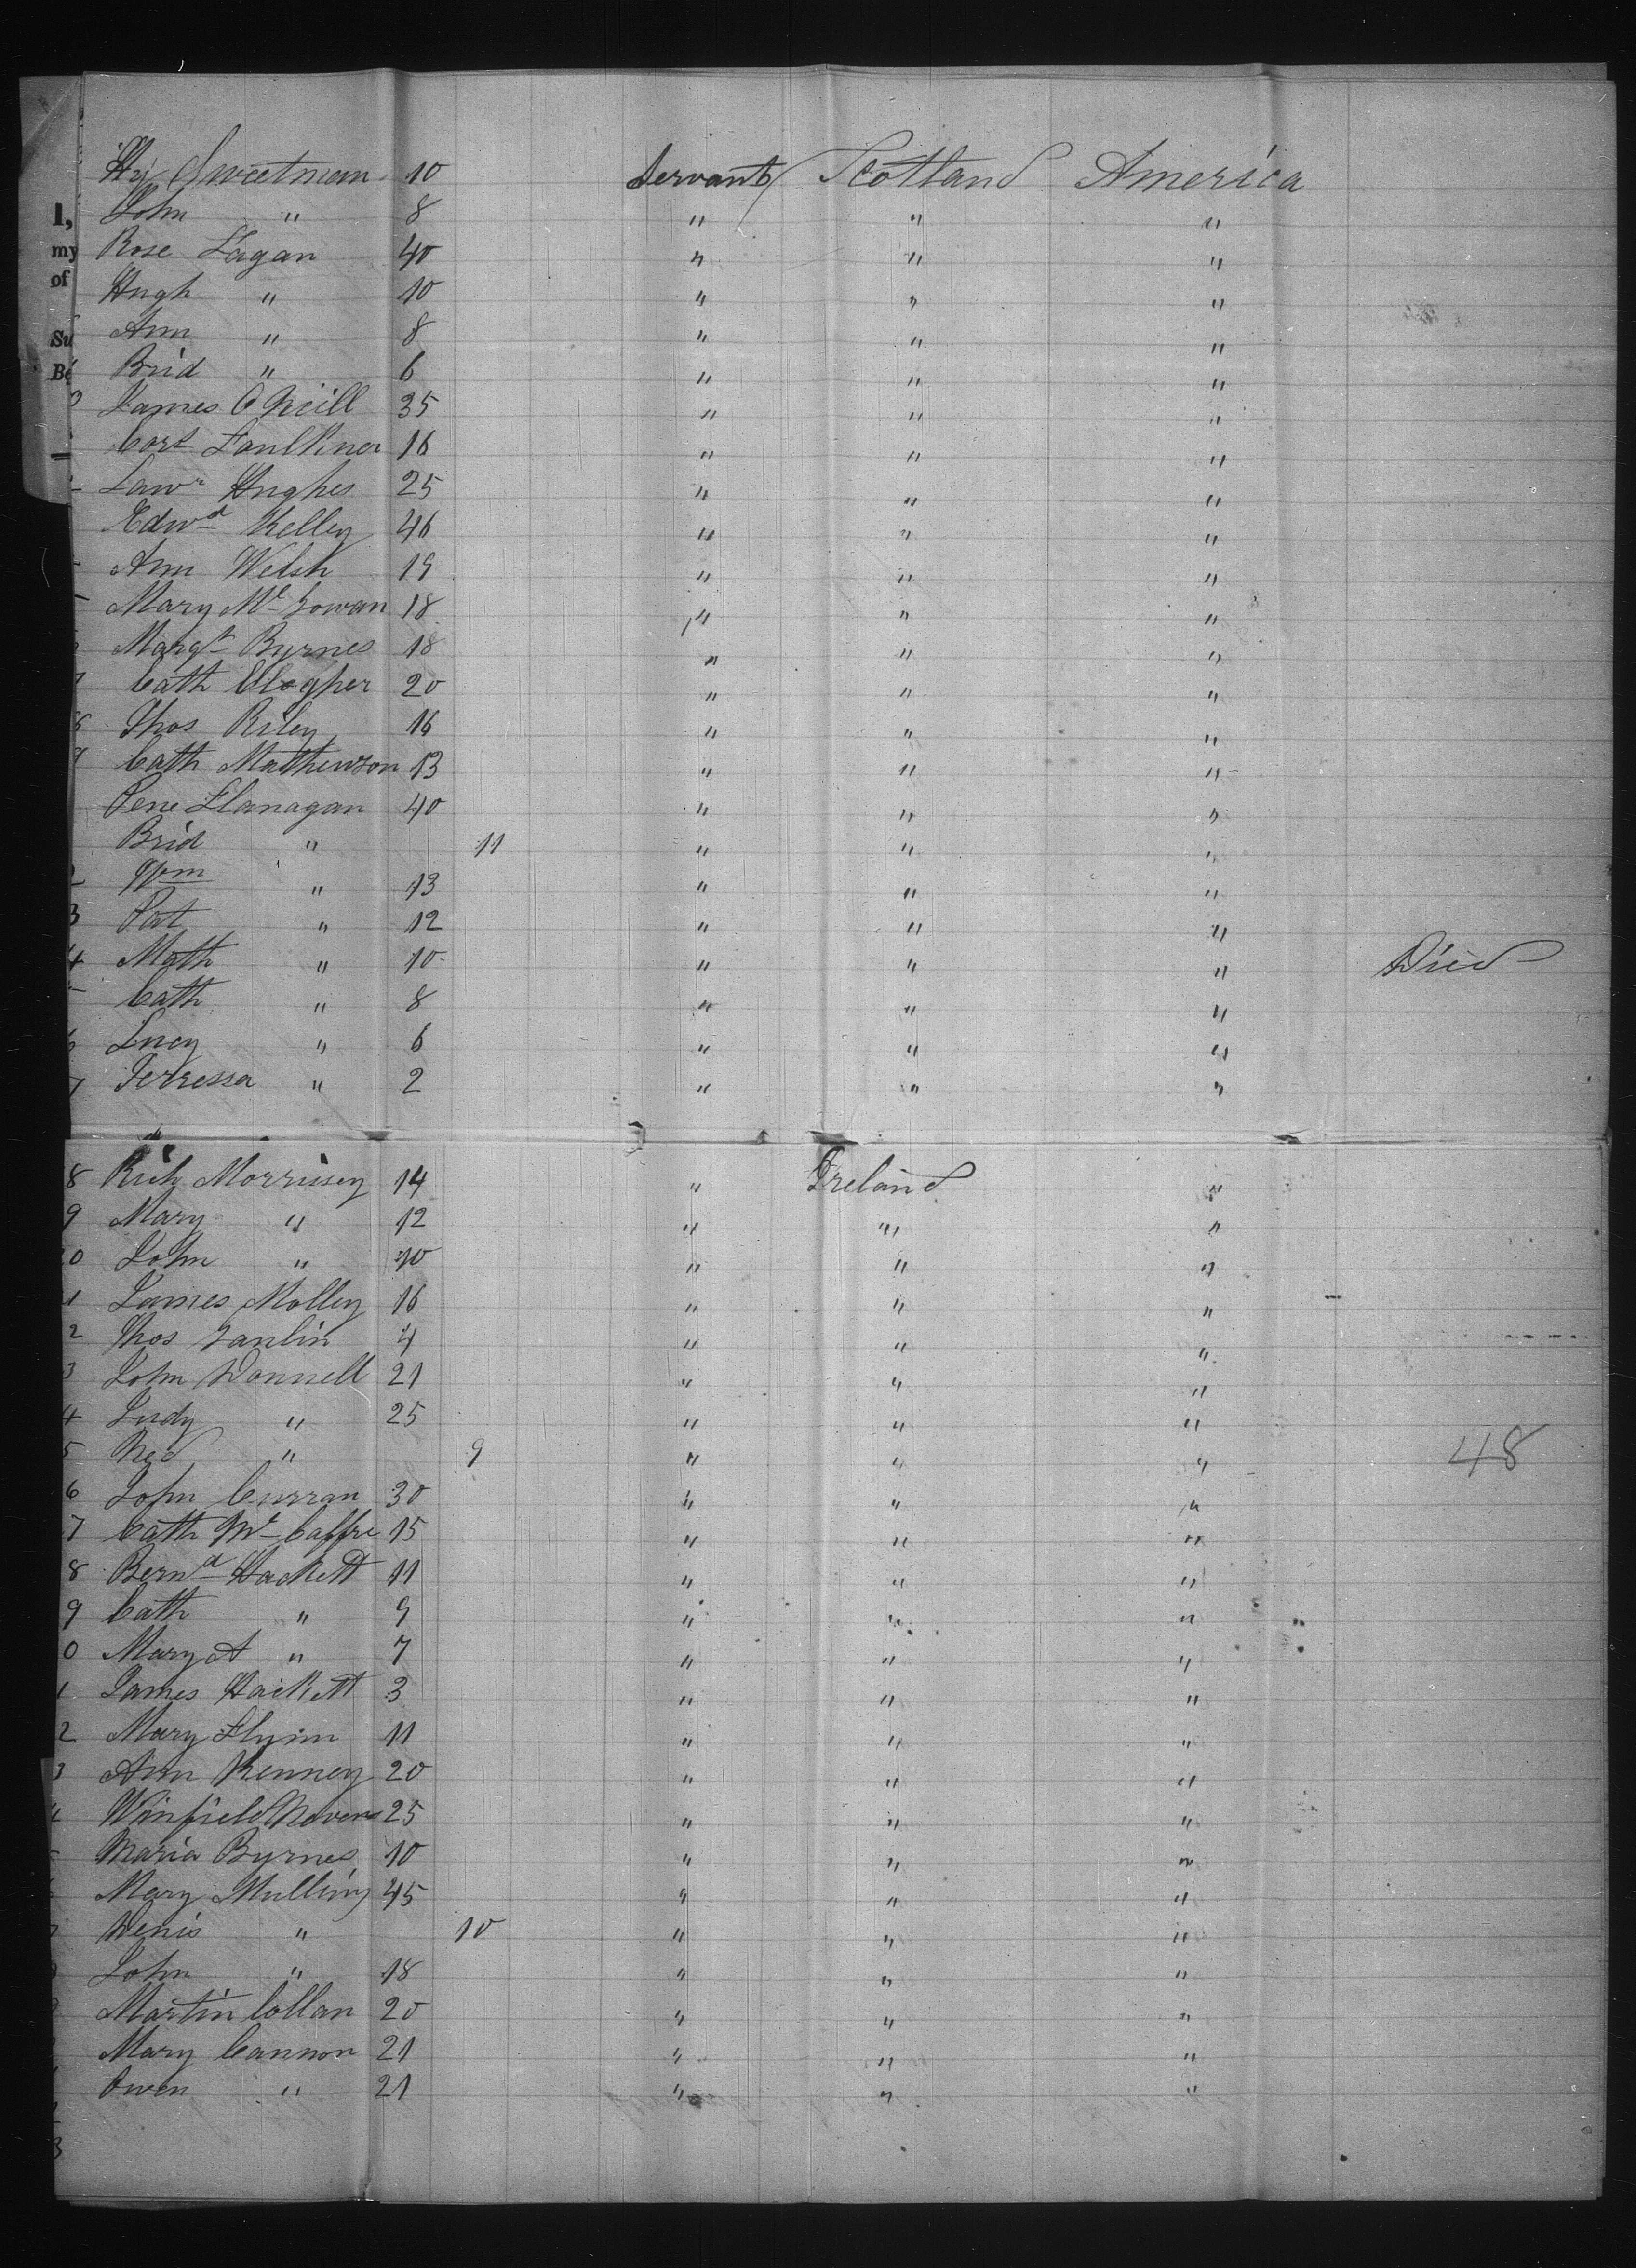 Hy Sweetman 10 Servants Scotland America
John " 8 " " "
Rose Fagan 40 " " "
Hugh " 10 " " "
Ann " 8 " " "
Brid " 6 " " "
James O Neill 35 " " "
Faulkner 16 " " "
Lawr Hughes 25 " " "
Edwd Kelley 46 " " "
Ann Welsh 19 " " "
Mary Mc Gowan 18 " " "
Margt Byrnes 18 " " "
7 Cath Clogher 20 " " "
8 Thos Riley 16 " " "
9 Cath Mathewson 13 " " "
Flanagan 40 " " "
Brid " 11 " " "
2 Wm " 13 " " "
3 Pat " 12 " " "
4 Math " 10 " " " Died
Cath " 8 " " "
6 Lucy " 6 " " "
7 Terressa " 2 " " "
8 Rich Morrisey 14 " Ireland "
9 Mary " 12 " " "
0 John " 10 " " "
1 James Molley 16 " " "
2 Thos 4 " " "
3 John Donnell 21 " " "
4 Judy " 25 " " "
5 Ned " 9 " " " 48
6 John Curran 30 " " "
7 Cath Mc Caffre 15 " " "
8 Bernd Hackett 11 " " "
9 Cath " 9 " " "
0 Mary A " 7 " " "
1 James Hackett 3 " " "
2 Mary Flynn 11 " " "
3 Ann Kenney 20 " " "
Winfield Navens 25 " " "
Maria Byrnes 10 " " "
Mary Mulling 45 " " "
Denis " 10 " " "
John " 18 " " "
Martin Collan 20 " " "
Mary Cannon 21 " " "
Owen " 21 " " "
3
1,
my
of
Su
Be